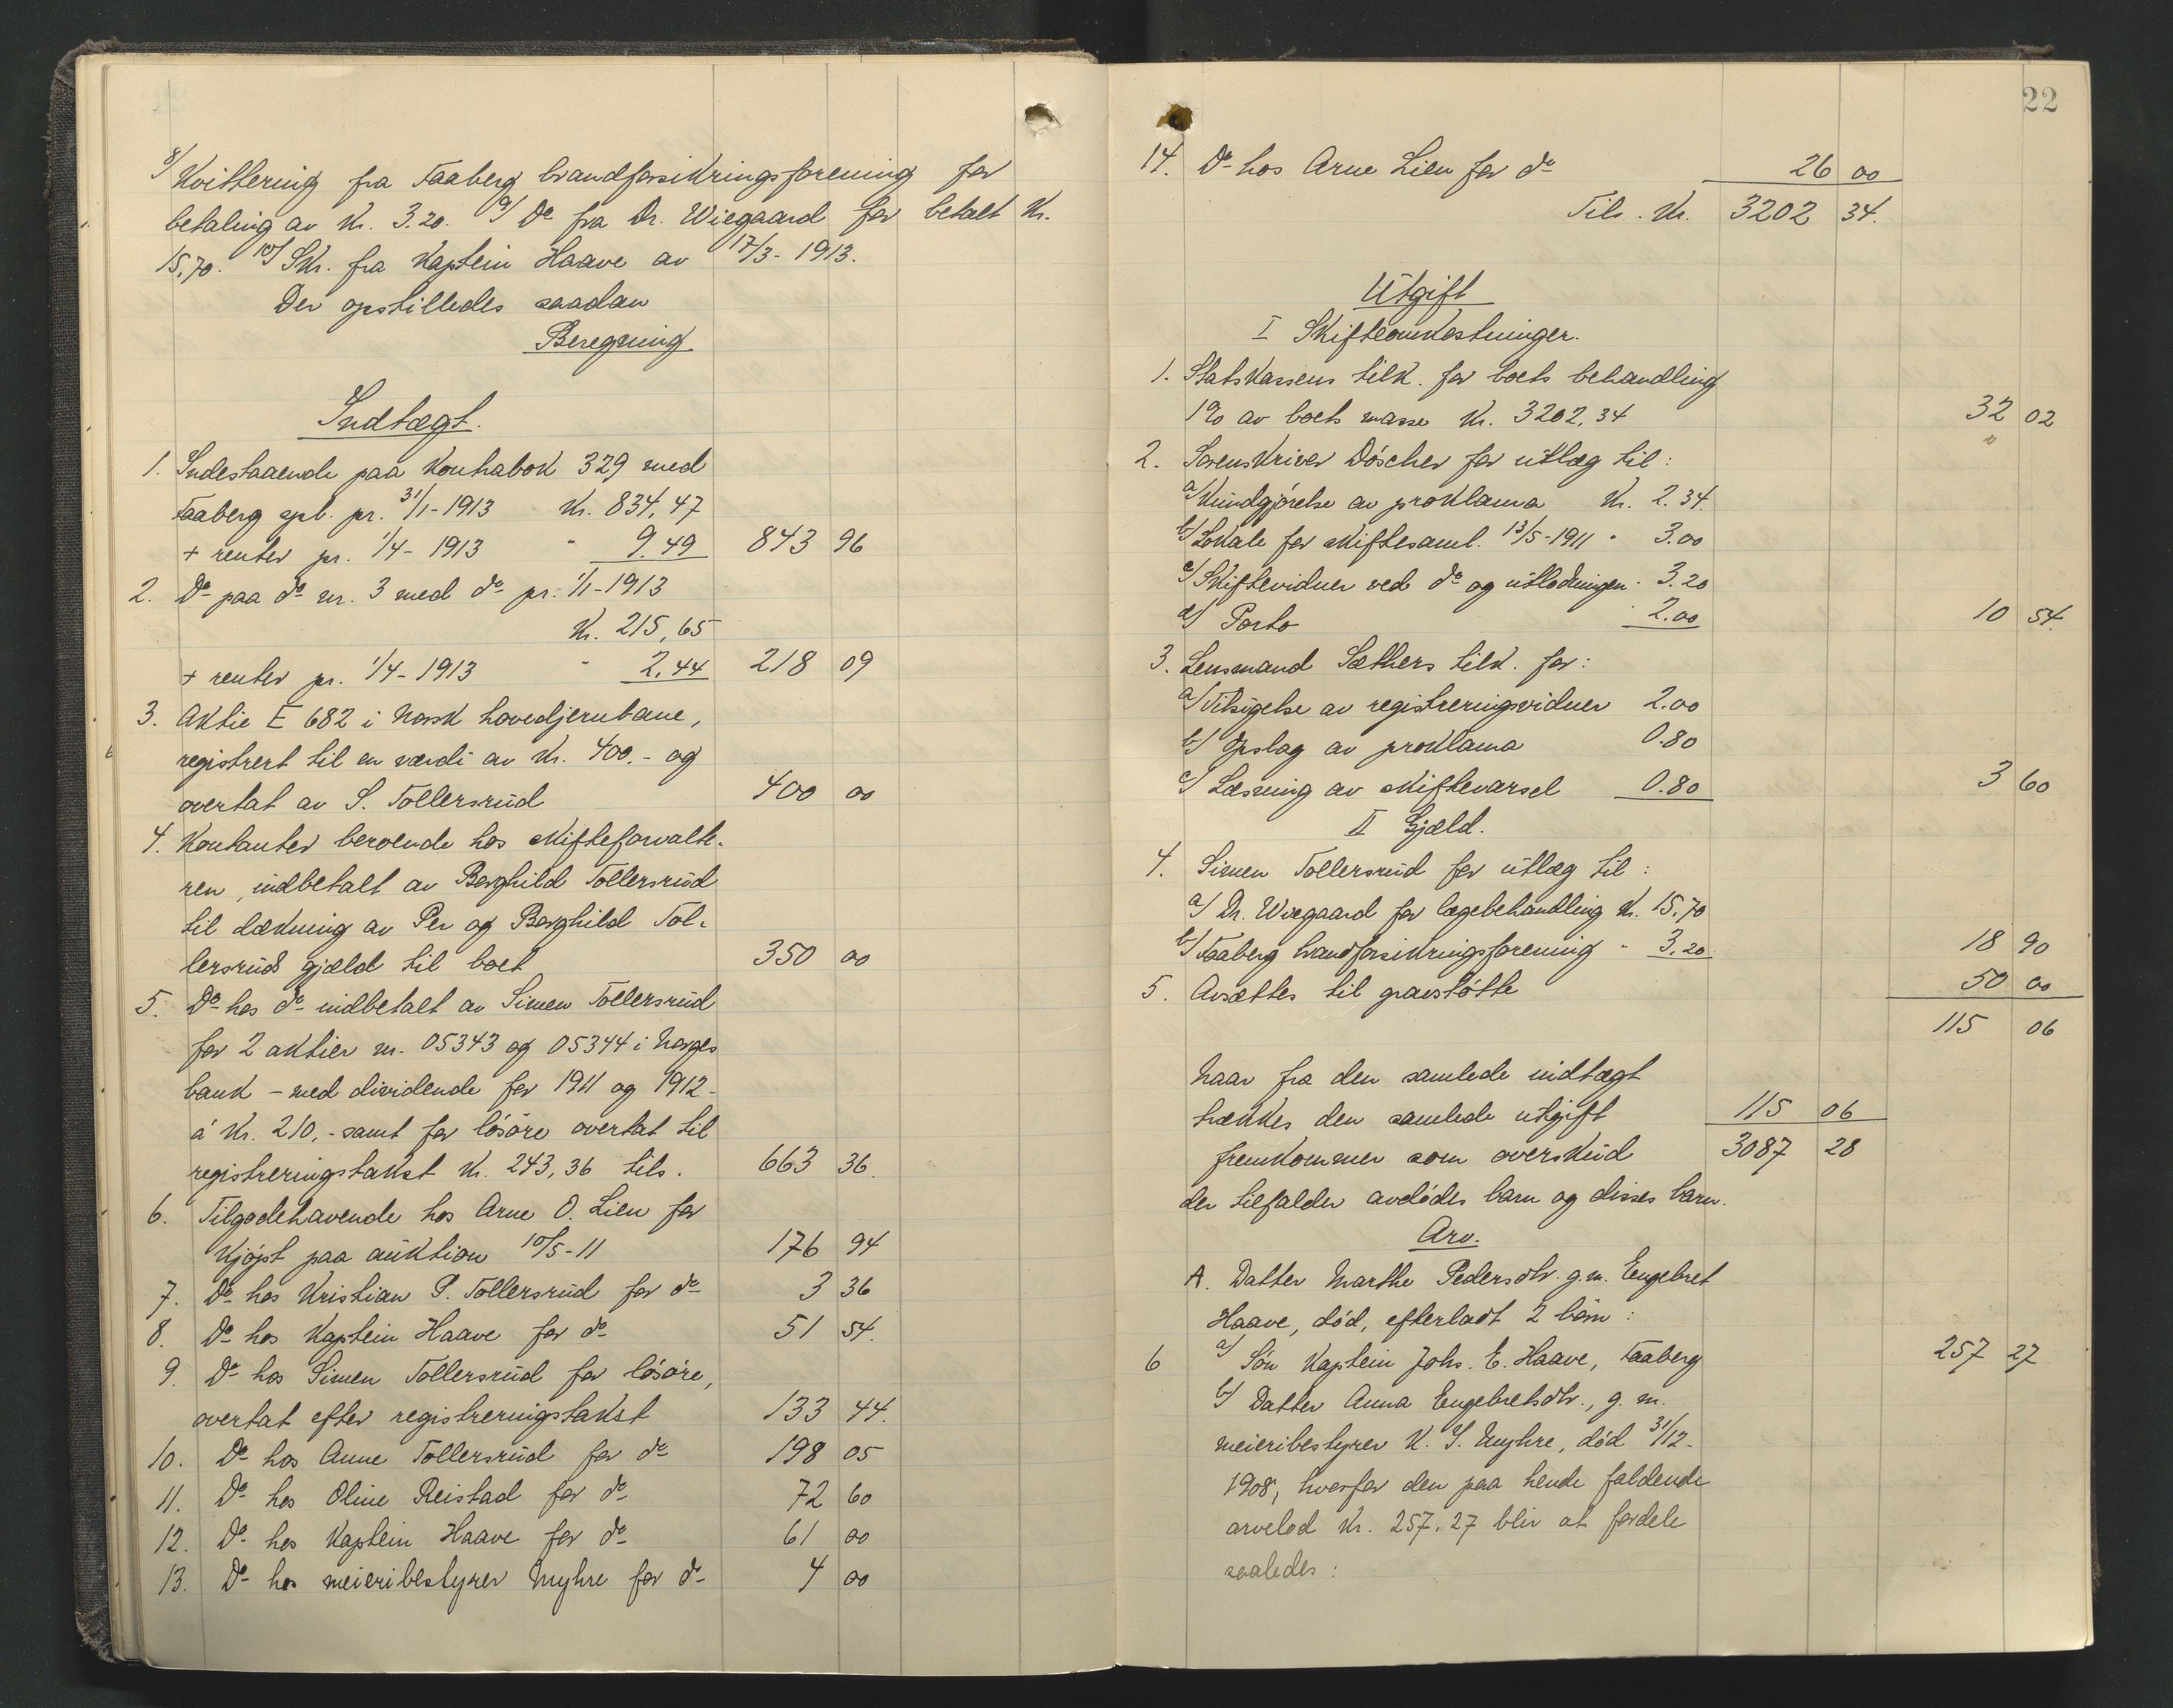 8/ Kvittering fra Faaberg brandforsikringsforening for
betaling av Kr. 3.20. 9/ Do fra Dr. Wiegaard for betalt Kr.
15,70. 10/ Skr. fra Kaptein Haave av 17/3-1913.
Der opstilledes saadan
Beregning
Indtægt.
1. Indestaaende paa Kontrabok 329 med
Faaberg spb. pr. 31/1-1913 Kr. 834,47
+ renter pr. 1/4-1913 " 9.49 843 96
2. Do paa do nr. 3 med do pr. 1/1-1913
Kr. 215,65
+ renter pr. 1/4-1913 " 2,44 218 09
3. Aktie E 682 i Norsk hovedjernbane,
registrert til en værdi av Kr. 400.- og
overtat av S. Tollersrud 400 00
4. Kontanter beroende hos skifteforvalte-
ren, indbetalt av Borghild Tollersrud
til dækning av Per og Borghild Tol-
lersruds gjæld til boet 350 00
5. Do hos do indbetalt av Simen Tollersrud
for 2 aktier nr. 05343 og 05344 i Norges
bank - med dividende for 1911 og 1912 -
á Kr. 210,- samt for løsøre overtat til
registreringstakst Kr. 243,36 tils. 663 36.
6. Tilgodehavende hos Arne O. Lien for
Kjøpt paa auktion 10/5-11 176 94
7. Do hos Kristian P. Tollersrud for do 3 36
8. Do hos Kaptein Haave for do 51 54.
9. Do hos Simen Tollersrud for løsøre,
overtat efter registreringstakst 133 44.
10. Do hos Anne Tollersrud for do 198 05
11. Do hos Oline Reistad for do 72 60
12. Do hos Kaptein Haave for do 61 00
13. Do hos meieribestyrer Myhre for do 4 00
22
14. Do hos Arne Lien for do 26 00
Tils. Kr. 3202 34.
Utgift
I Skifteomkostninger.
1. Statskassens tilk. for boets behandling
1% av boets masse Kr. 3202,34 32 02
2. Sorenskriver Döscher for utlæg til:
a/ Kundgjørelse av proklama Kr. 2.34.
b/ Lokale for skiftesaml. 13/5-1911 " 3.00
c/ Skiftevidner ved do og utlodningen " 3.20
d/ Porto " 2.00 10 54.
3. Lensmand Sæthers tilk. for:
a/ Tilsigelse av registreringsvidner 2.00
b/ Opslag av proklama 0.80
c/ Læsning av skiftevarsel 0.80 3 60
II Gjæld.
4. Simen Tollersrud for utlæg til:
a/ Dr. Wiegaard for lægebehandling Kr. 15,70
b/ Faaberg brandforsikringsforening " 3.20 18 90
5. Avsættes til gravstøtte 50 00
115 06
Naar fra den samlede indtægt
trækkes den samlede utgift 115 06
fremkommer som overskud 3087 28
der tilfalder avdødes barn og disses barn.
Arv.
A. Datter Marthe Pedersdtr. g.m. Engebret
Haave, død, efterladt 2 børn:
6 a/ Søn Kaptein Johs. E. Haave, Faaberg 257 27
b/ Datter Anna Engebretsdtr., g.m.
meieribestyrer K. S. Myhre, død 31/12-
1908, hvorfor den paa hende faldende
arvelod Kr. 257,27 blir at fordele
saaledes: